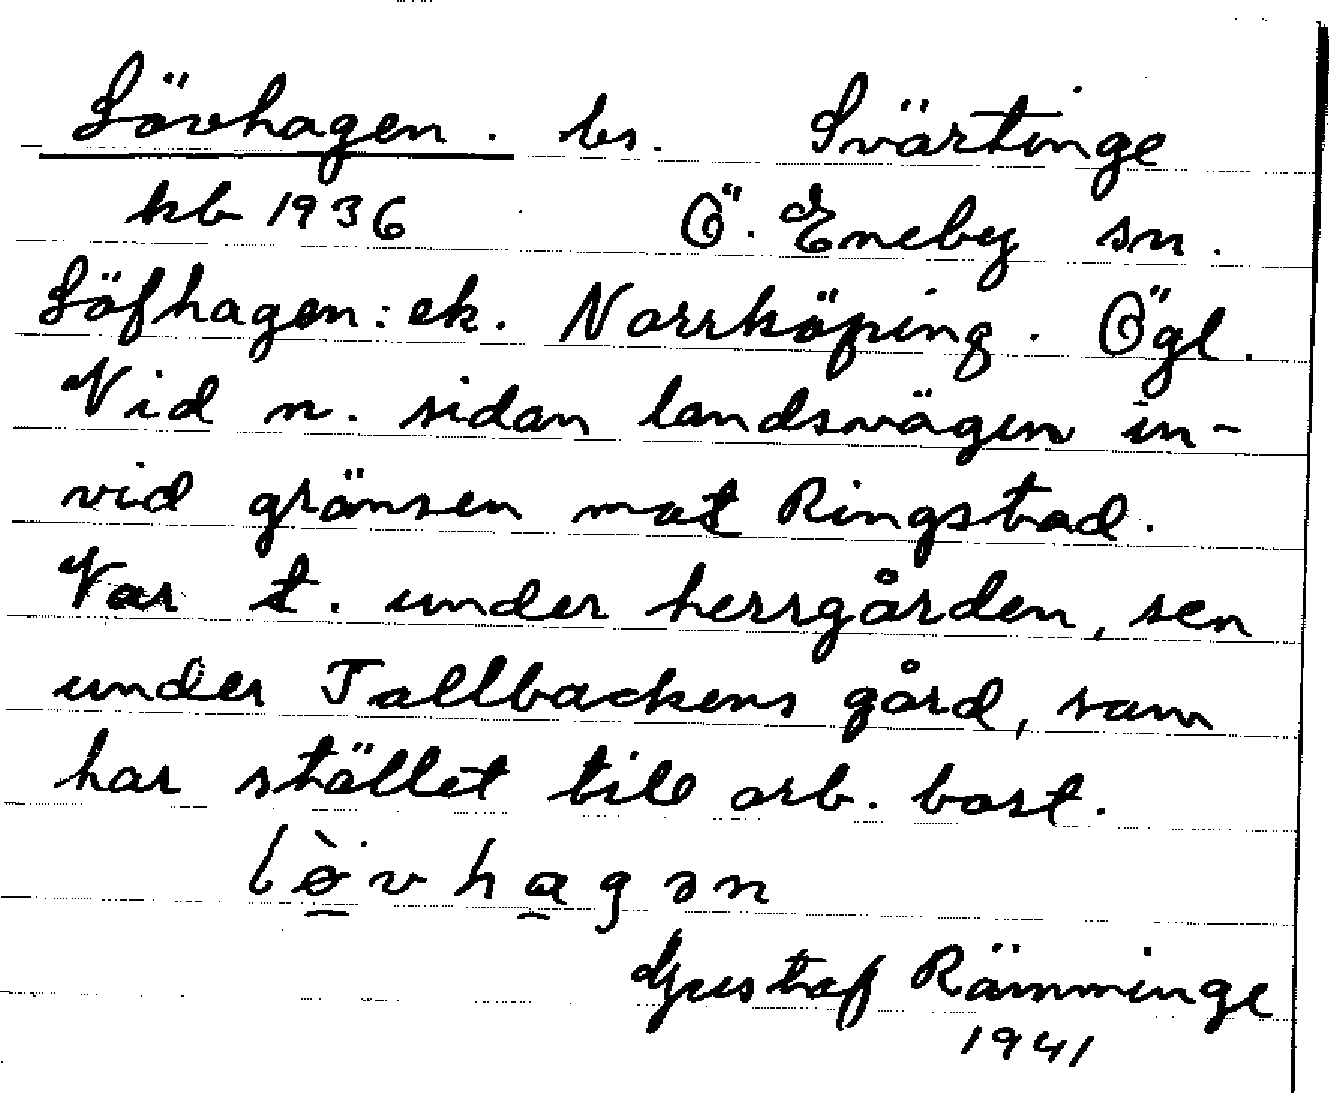 Lövhagen. bs. Svärtinge
kb 1936 Ö. Eneby sn.
Löfhagen: ek. Norrköping. Ögl.
Vid n. sidan landsvägen in-
vid gränsen mot Ringstad.
Var t. under herrgården, sen
under Tallbackens gård, som
har stället till arb. bost.
lø̀·vhagən
Gustaf Rämminge
1941